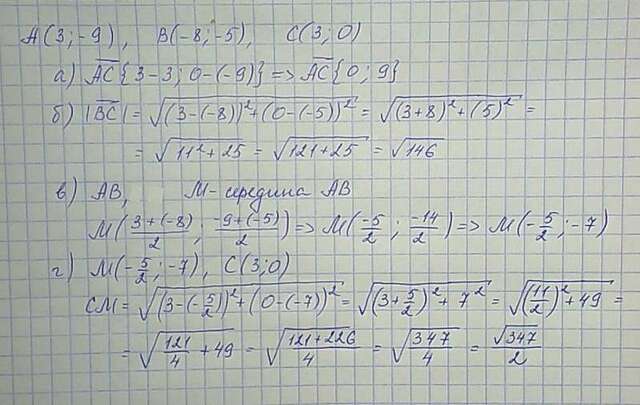 A(3;-9), B(-8;-5), C(3;0)
а) AC{3-3; 0-(-9)} => AC{0; 9}
б) |BC| = √((3-(-8))²+(0-(-5))²) = √((3+8)²+(5)²) =
= √(11²+25) = √(121+25) = √146
в) AB, M-середина AB
M((3+(-8))/2; (-9+(-5))/2) => M(-5/2; -14/2) => M(-5/2; -7)
г) M(-5/2; -7), C(3;0)
CM = √((3-(-5/2))²+(0-(-7))²) = √((3+5/2)²+7²) = √((11/2)²+49) =
= √(121/4+49) = √((121+226)/4) = √(347/4) = √347/2